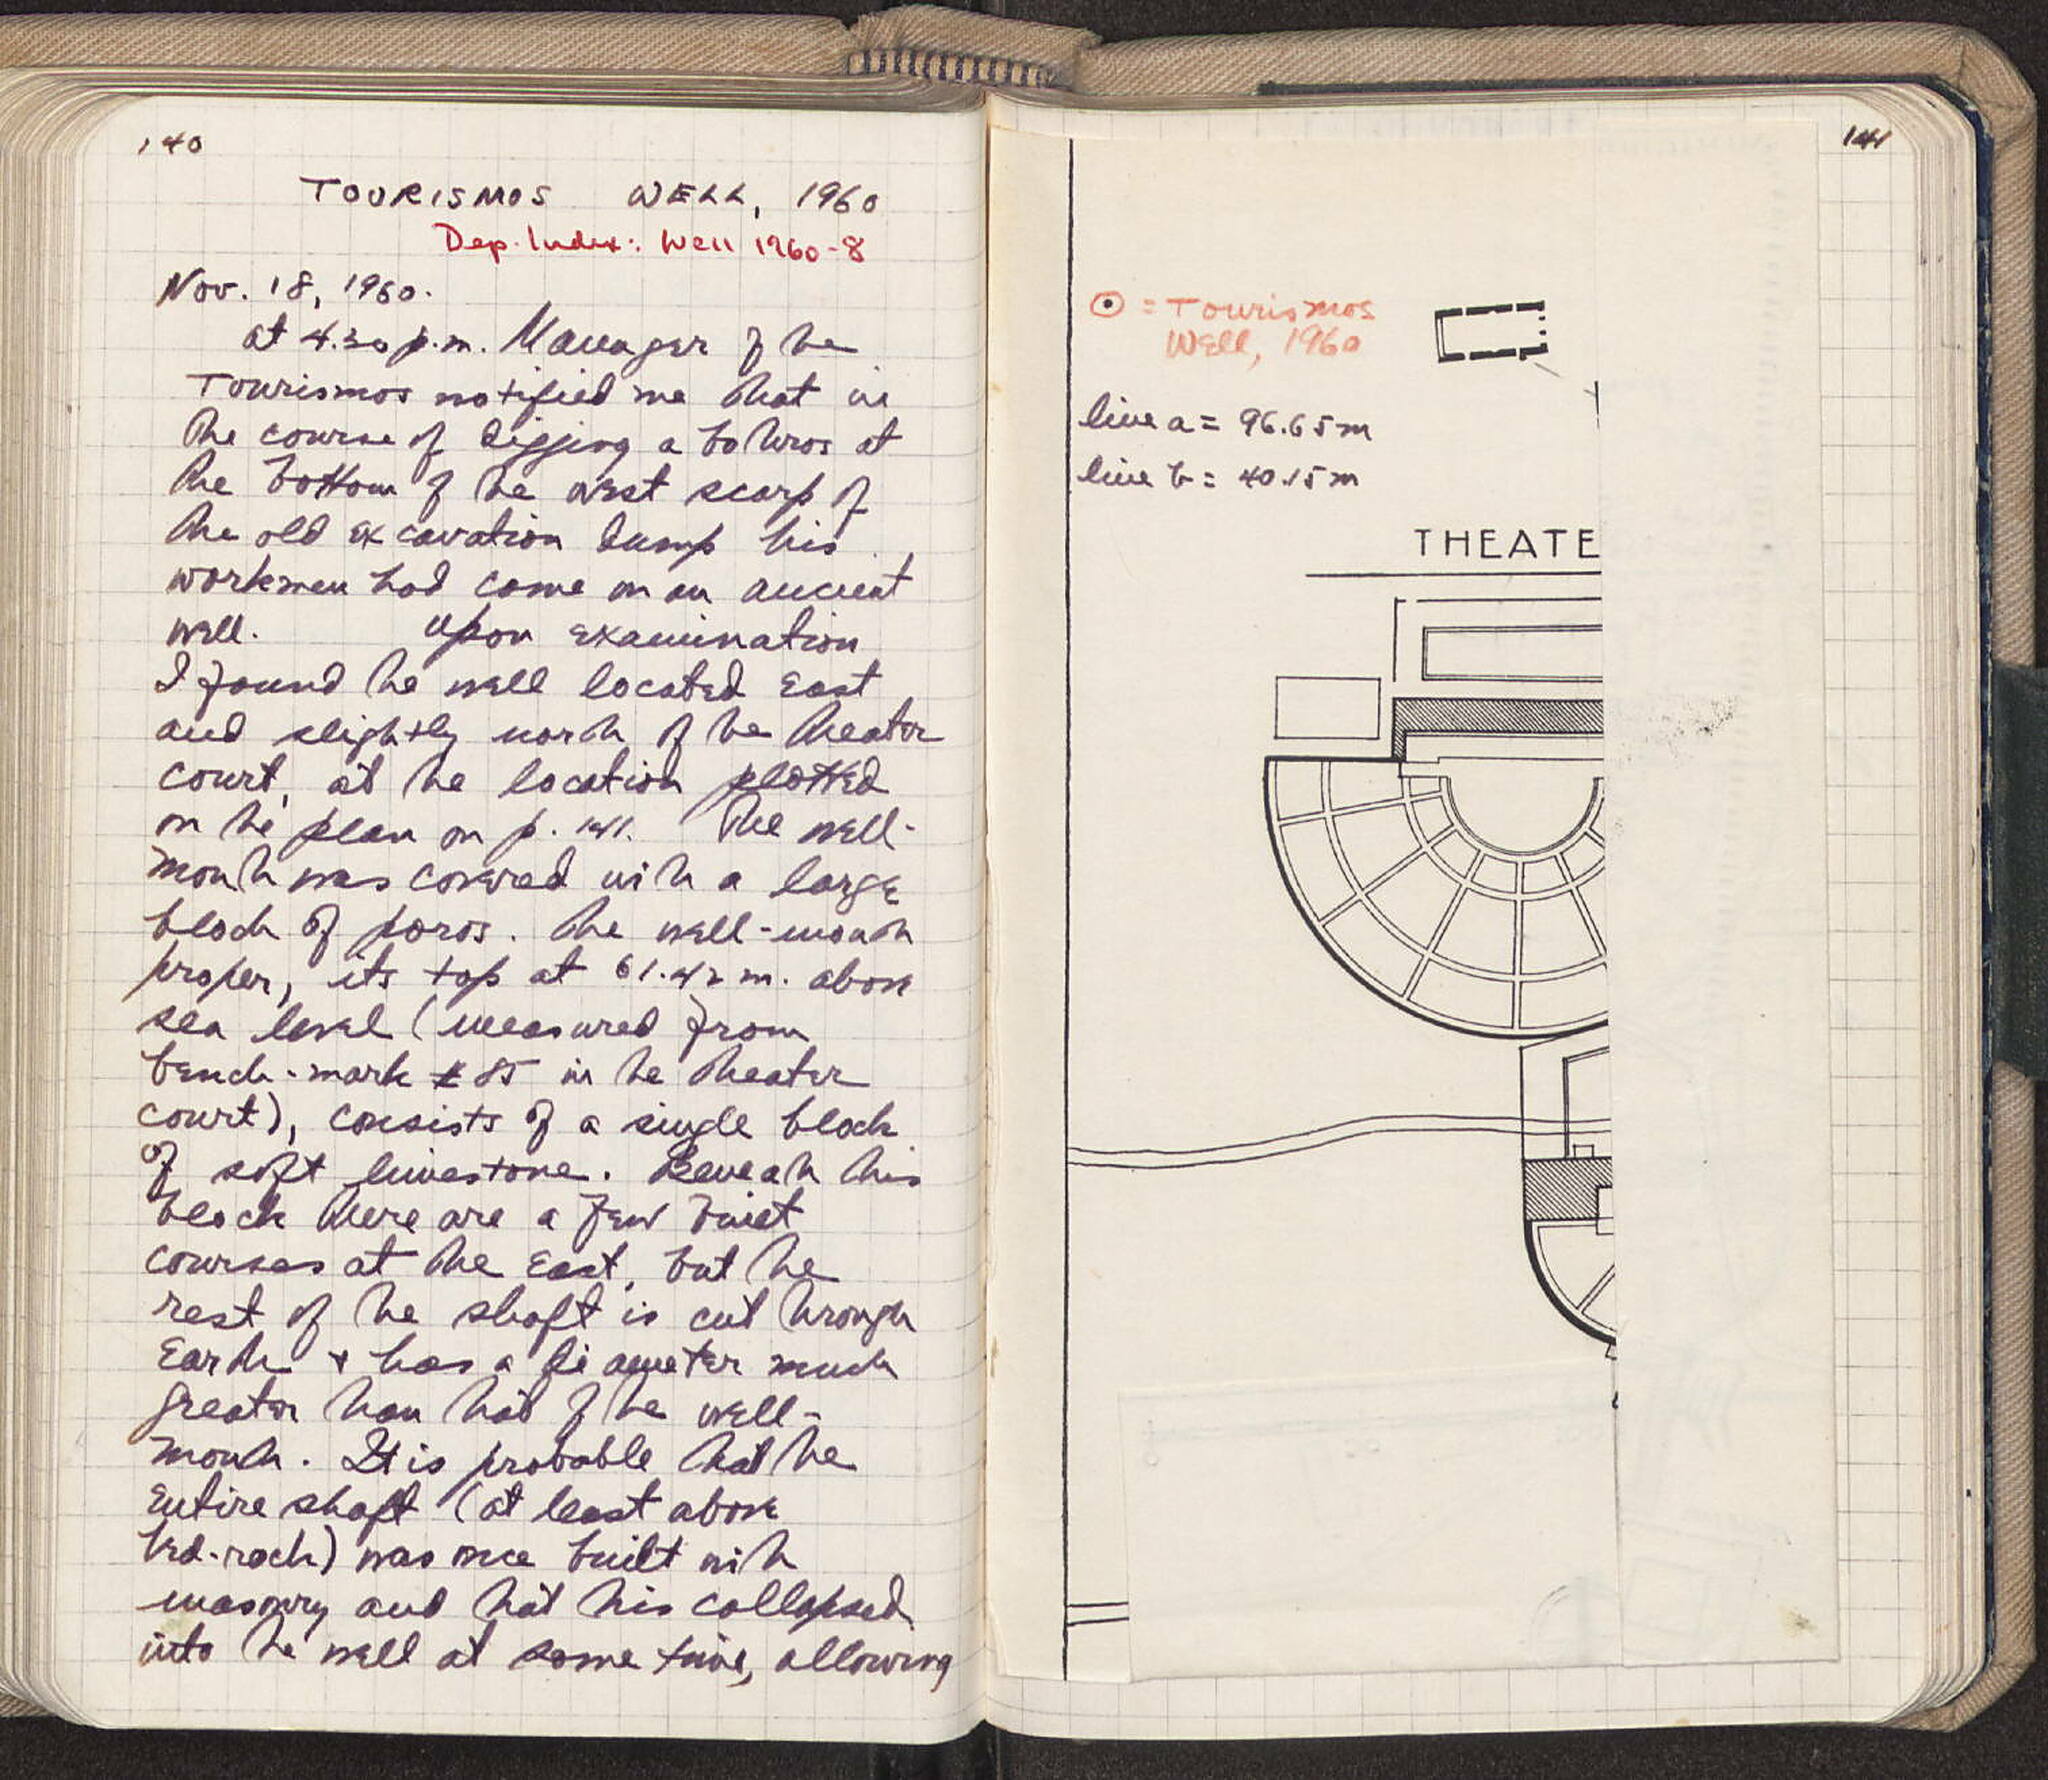 140
TOURISMOS WELL, 1960
Dep. Index: Well 1960-8
Nov. 18, 1960.
at 4.30 p.m. Manager of the
Tourismos notified me that in
the course of digging a bothros at
the bottom of the west scarp of
the old excavation dump his
workmen had come on an ancient
well. Upon examination
I found the well located East
and slightly north of the theater
court, at the location plotted
on the plan on p. 141. The well-
mouth was covered with a large
block of poros. The well-mouth
proper, its top at 61.42 m. above
sea level (measured from
bench-mark #85 in the theater
court), consists of a single block
of soft limestone. Beneath this
block there are a few built
courses at the East, but the
rest of the shaft is cut through
Earth + has a diameter much
greater than that of the well-
mouth. It is probable that the
entire shaft (at least above
bed-rock) was once built with
masonry and that this collapsed
into the well at some time, allowing
141
⊙ = Tourismos
Well, 1960
line a = 96.65 m
line b = 40.15 m
THEATE